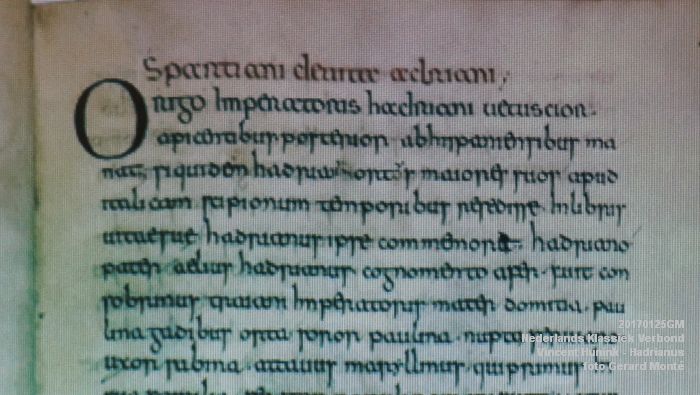 Spartiani de uita adriani
Origo Imperatoris hadriani uetustior
apicentibus posterior abhispaniensibus ma
nat. siquidem hadria ortos maiores suos apud
italicam scipionum temporibus resedisse. Inlibris
uitaesuae hadrianus ipse commemorat. hadriano
pater aelius hadrianus cognomento afer. fuit con
sobrinus traiani Imperatoris mater domitia. pau
lina gadibus orta soror paulina. nupta seruiano
uxor sabina. atauus maryllinus. quiprimus
20170125GM
Nederlands Klassiek Verbond
Vincent Hunink - Hadrianus
foto Gerard Monté